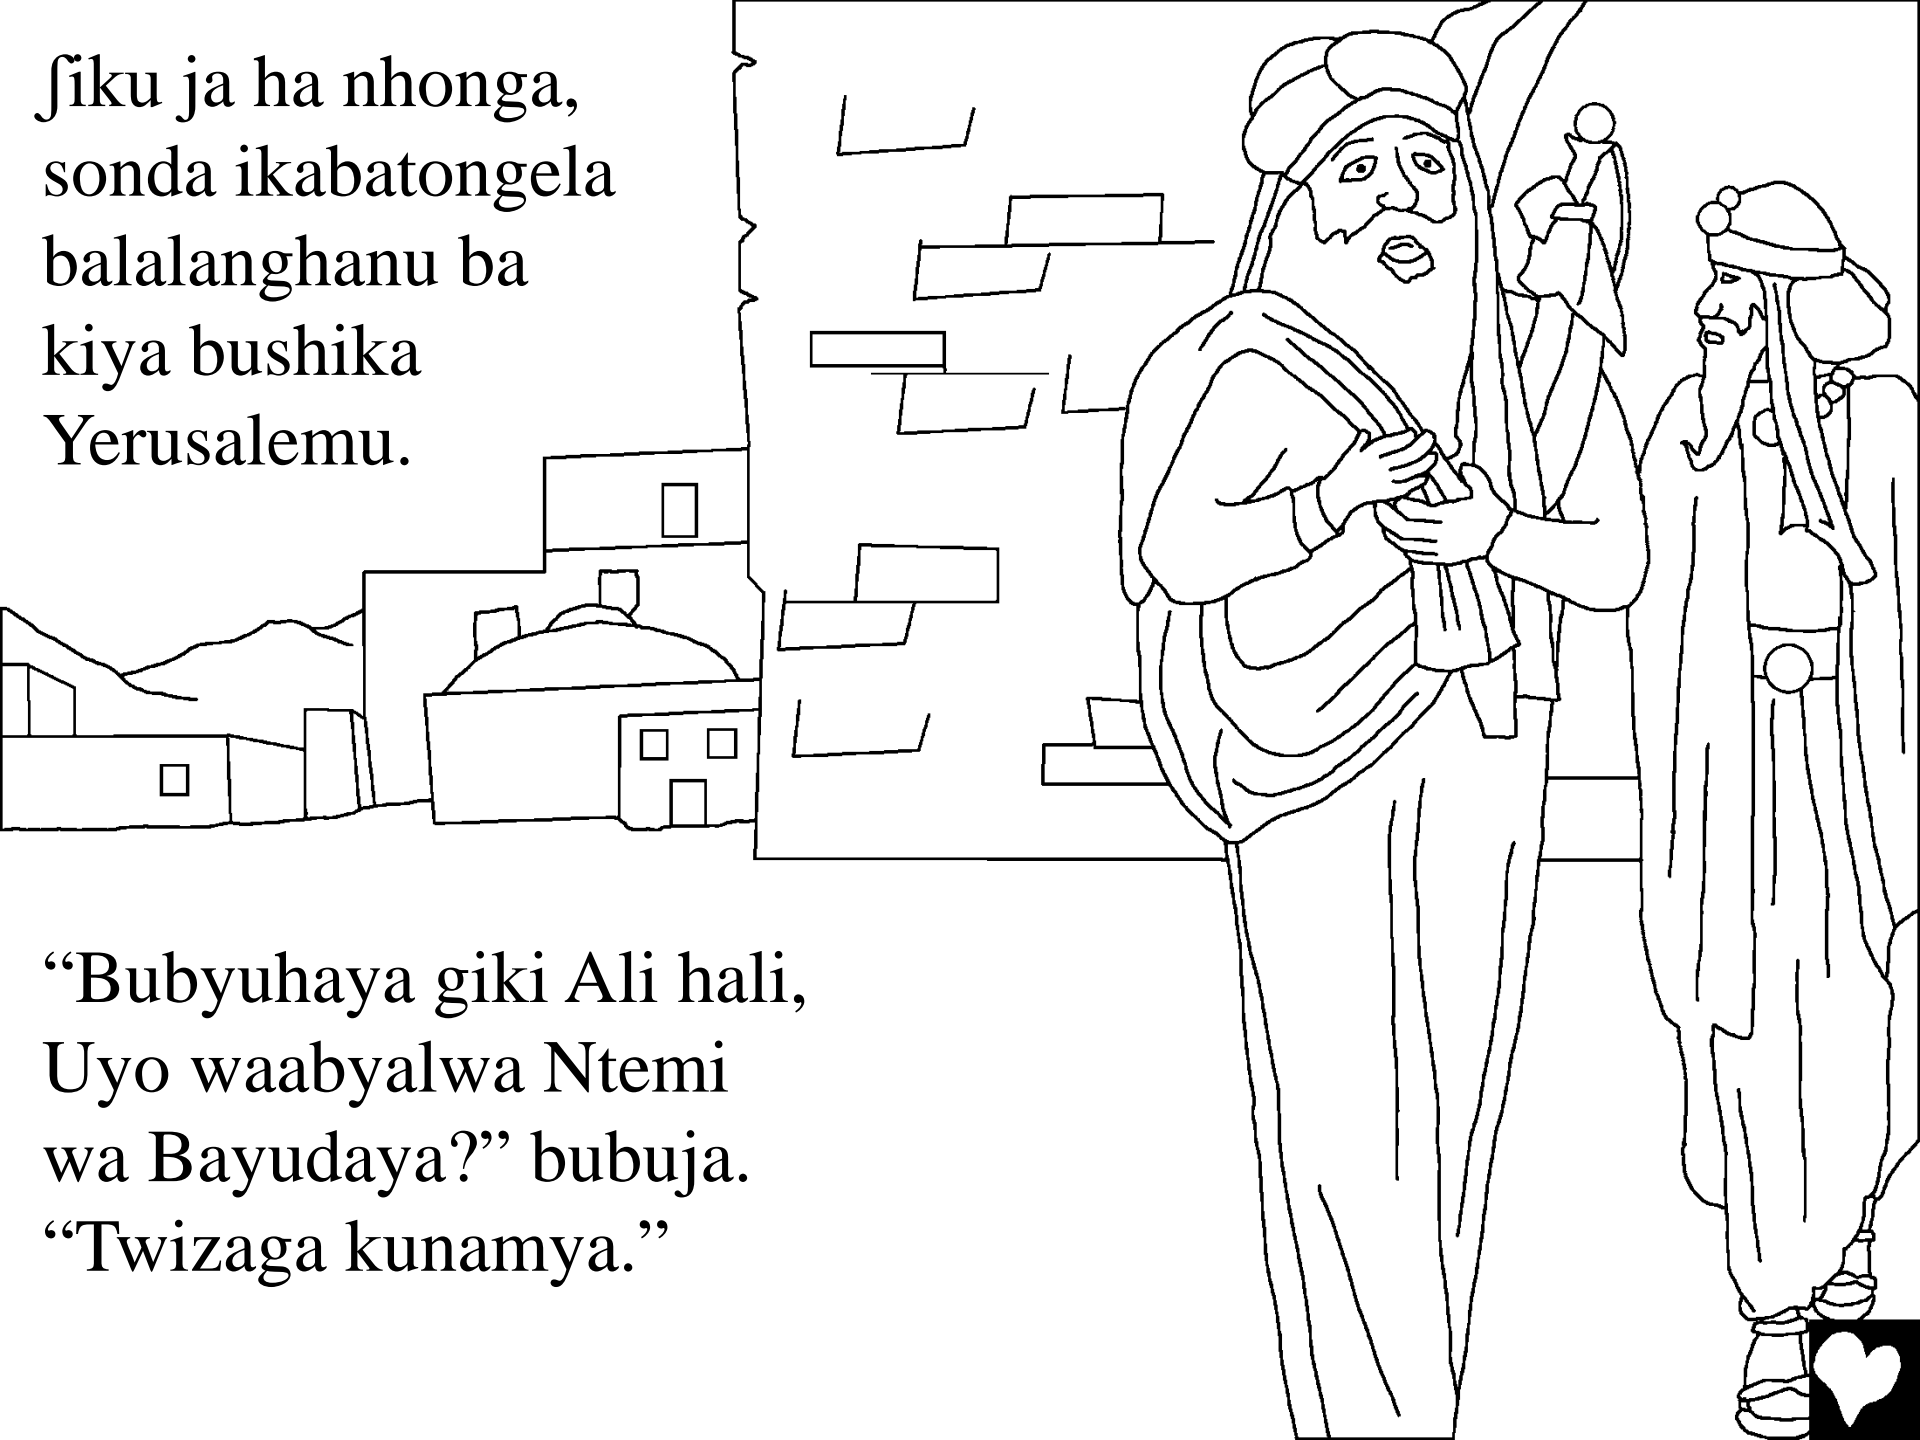 ʃiku ja ha nhonga,
sonda ikabatongela
balalanghanu ba
kiya bushika
Yerusalemu.
“Bubyuhaya giki Ali hali,
Uyo waabyalwa Ntemi
wa Bayudaya?” bubuja.
“Twizaga kunamya.”